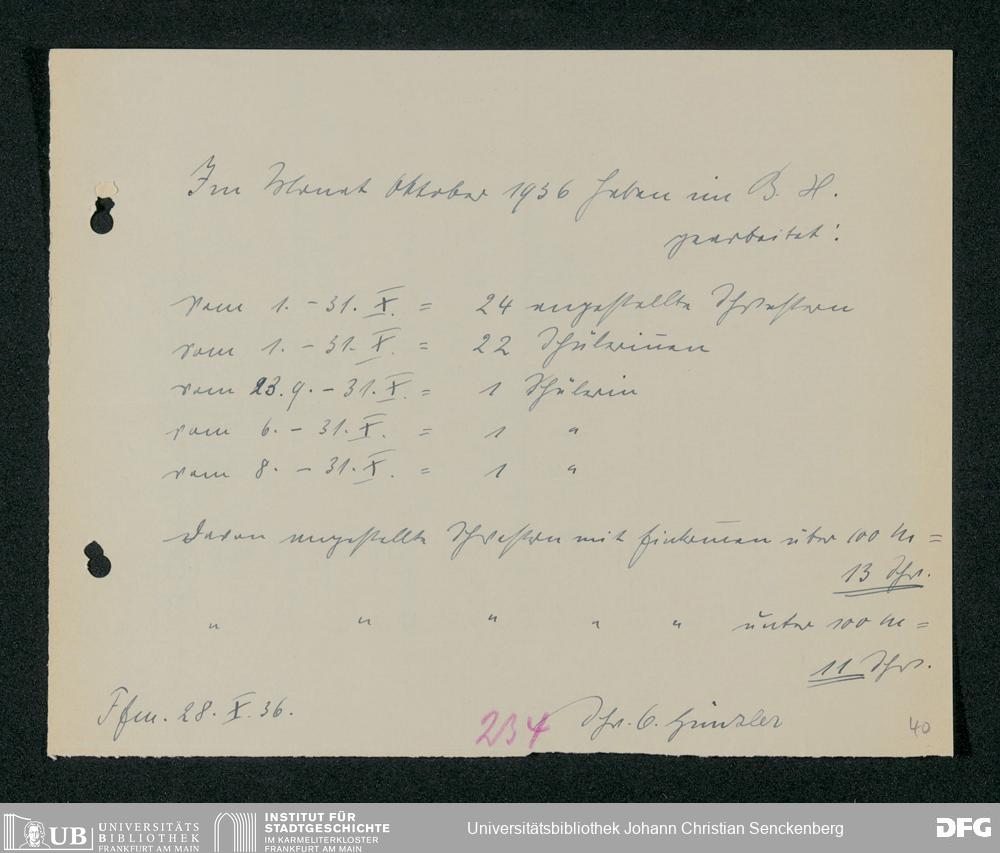 Im Monat Oktober 1936 haben im B. H.
gearbeitet:
vom 1. – 31. X. = 24 angestellte Schwestern
vom 1. – 31. X. = 22 Schülerinnen
vom 23.9. – 31. X. = 1 Schülerin
vom 6. – 31. X. = 1 "
vom 8. – 31. X. = 1 "
Davon angestellte Schwestern mit Einkommen über 100 M =
13 Schw.
" " " " " unter 100 M =
11 Schw.
Ffm. 28. X. 36.
234 Schw. C.
40
UB UNIVERSITÄTS
BIBLIOTHEK
FRANKFURT AM MAIN
INSTITUT FÜR
STADTGESCHICHTE
IM KARMELITERKLOSTER
FRANKFURT AM MAIN
Universitätsbibliothek Johann Christian Senckenberg
DFG